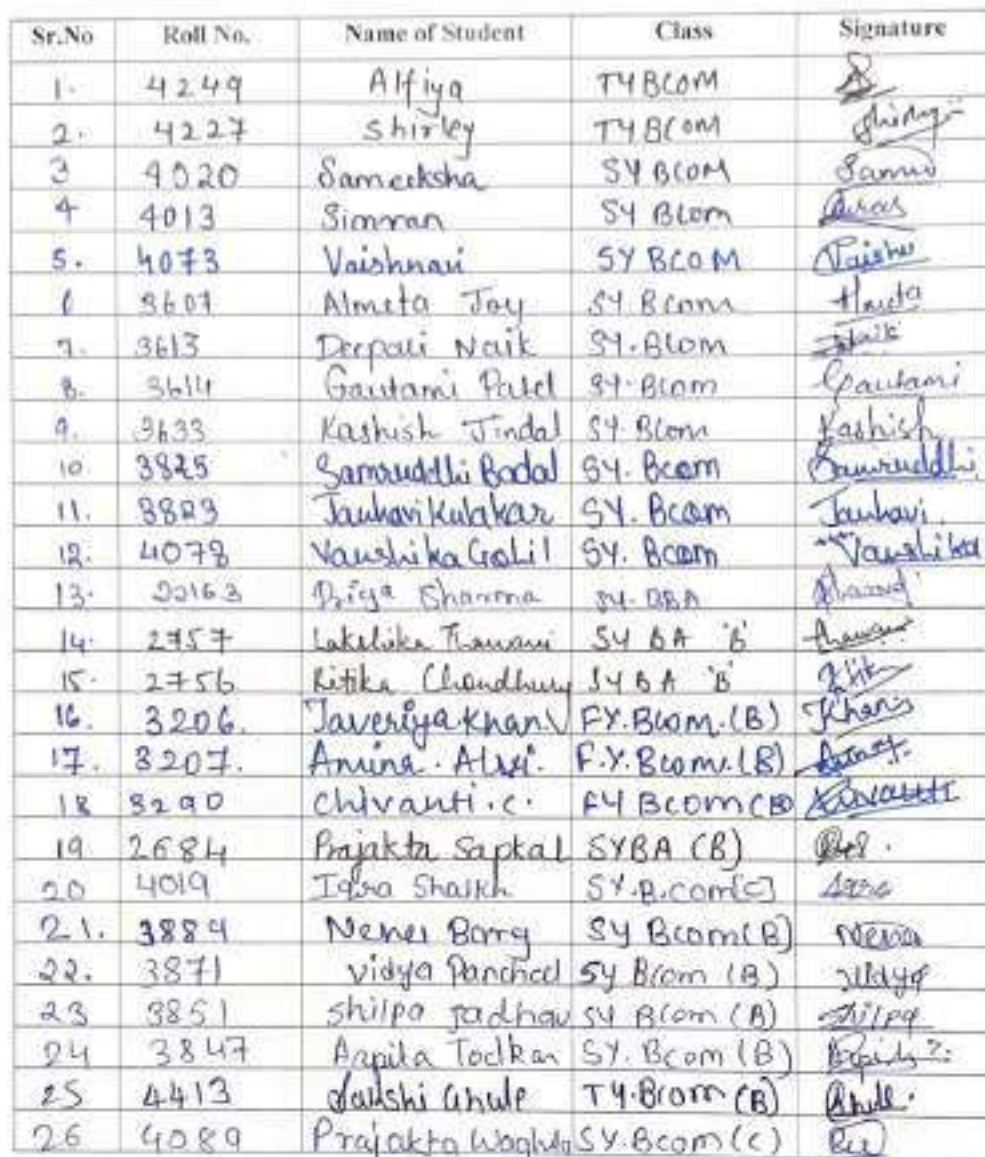 Sr.No Roll No. Name of Student Class Signature
1. 4249 Alfiya TYBCOM
2. 4227 Shirley TYBCOM Shirley
3 4020 Sameeksha SY BCOM Sami
4 4013 Simran SY BCom
5. 4073 Vaishnavi SY BCOM Vaishu
6 3607 Almeta Joy SY. Bcom Almeta
7. 3613 Deepali Naik SY. BCom Naik
8. 3614 Gautami Patel SY. BCom Gautami
9. 3633 Kashish Jindal SY. BCom Kashish
10 3825 Samruddhi Badal SY. Bcom Samruddhi
11. 3823 Janhavi Kulakar SY. Bcom Janhavi.
12. 4078 Vanshika Gohil SY. Bcom Vanshika
13. 22163 Priya Sharma SY. BBA Sharma
14. 2757 Lakshika SY BA 'B'
15. 2756 Ritika Choudhury SY BA 'B' Ritika
16. 3206. Javeriya Khan. FY. BCom. (B) Khan
17. 3207. Amina. Alvi. F.Y. Bcom. (B)
18 3290 Chivanti. C. FY Bcom (B) Chivanti
19. 2684 Prajakta Sapkal SYBA (B)
20 4019 Iqra Shaikh SY. B.com [C] Iqra
21. 3884 Neher Barg SY Bcom (B)
22. 3871 Vidya Pancheel SY Bcom (B) Vidya
23 3851 Shilpa Jadhav SY Bcom (B) Shilpa
24 3847 Arpita Todkar SY. Bcom (B)
25 4413 Ghule TY. Bcom (B) Ghule.
26 4089 Prajakta SY. Bcom (C)